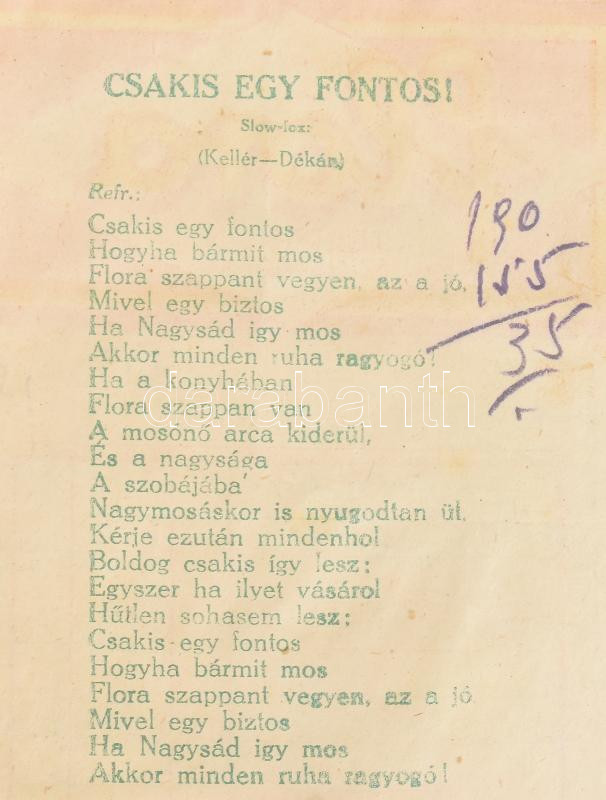 CSAKIS EGY FONTOS!
Slow-fox:
(Kellér—Dékán)
Refr.:
Csakis egy fontos
Hogyha bármit mos
Flora szappant vegyen, az a jó,
Mivel egy biztos
Ha Nagysád igy mos
Akkor minden ruha ragyogó!
Ha a konyhában
Flora szappan van
A mosónő arca kiderül,
És a nagysága
A szobájába'
Nagymosáskor is nyugodtan ül.
Kérje ezután mindenhol
Boldog csakis így lesz;
Egyszer ha ilyet vásárol
Hűtlen sohasem lesz:
Csakis egy fontos
Hogyha bármit mos
Flora szappant vegyen, az a jó
Mivel egy biztos
Ha Nagysád igy mos
Akkor minden ruha ragyogó!
190
155
35
darabanth